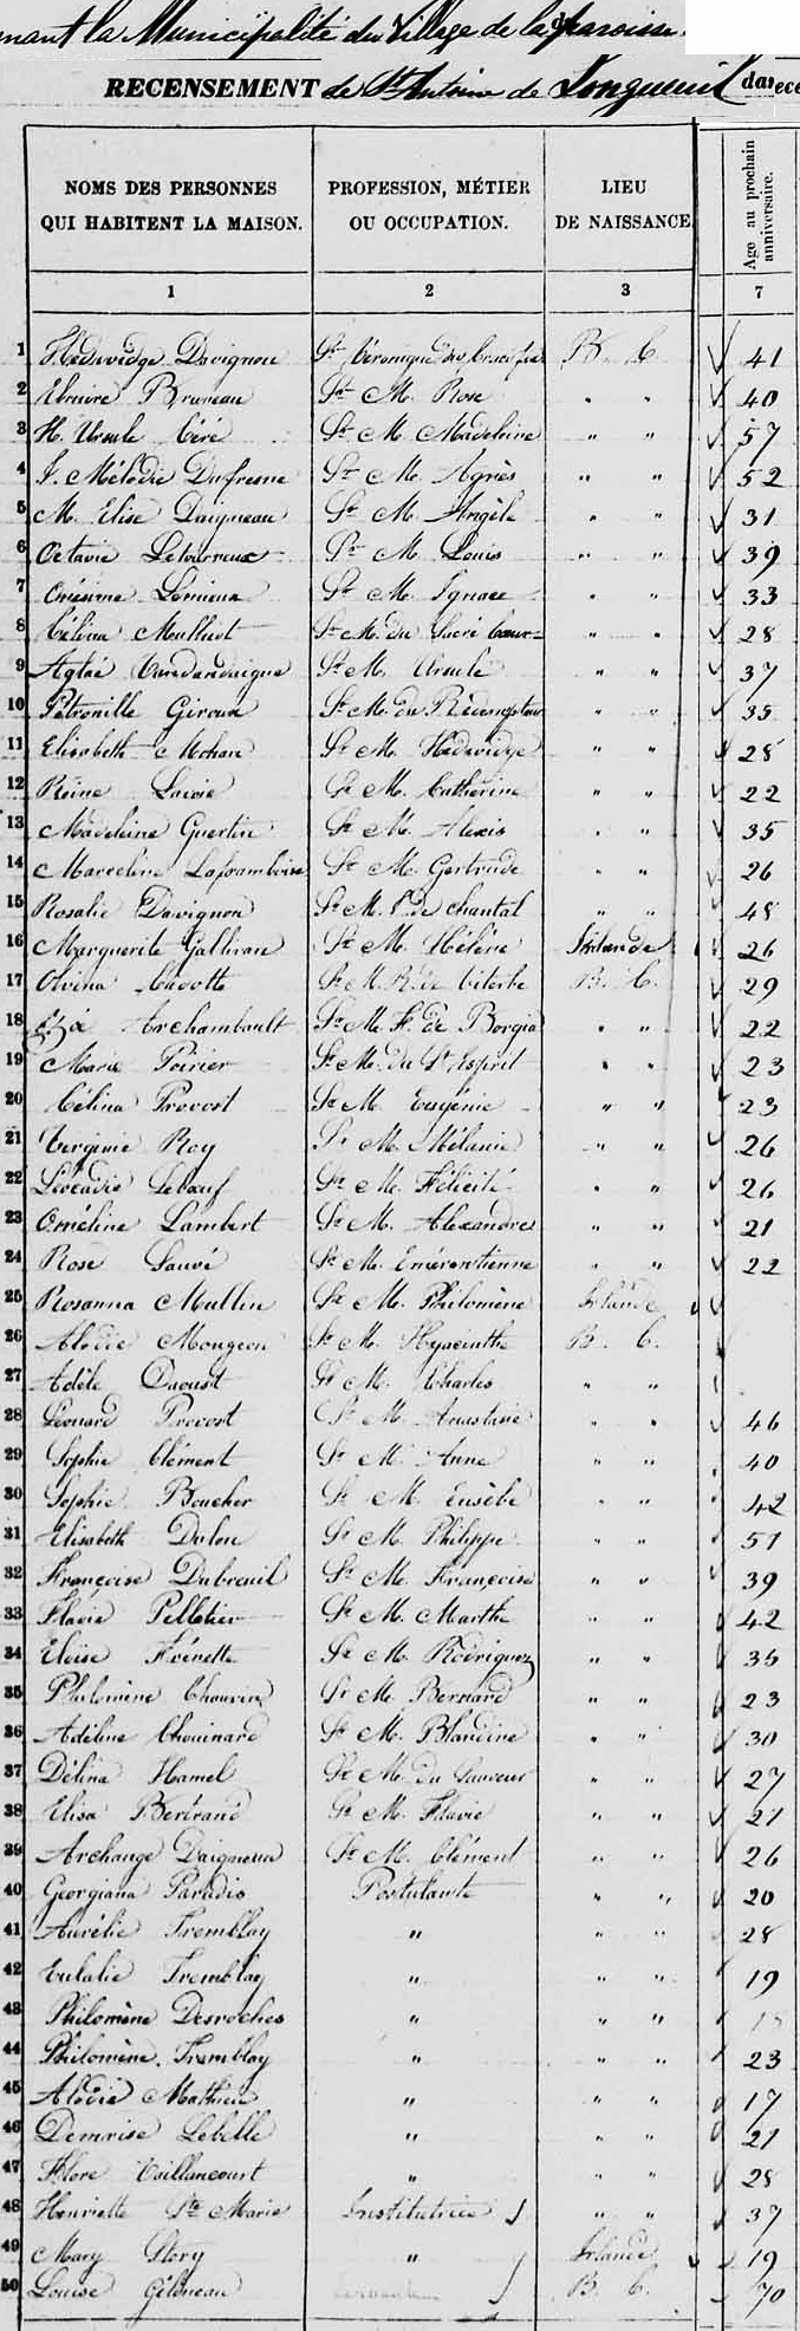 mant la Municipalité du Village de la paroisse
RECENSEMENT de St Antoine de Longueuil
NOMS DES PERSONNES QUI HABITENT LA MAISON. PROFESSION, MÉTIER OU OCCUPATION. LIEU DE NAISSANCE Age au prochain anniversaire.
1 2 3 7
1 Hedwidge Davignon Sr Véronique du Crucifix B. C. 41
2 Bruneau Sr M. Rose " " 40
3 H. Ursule Céré Sr M. Madeleine " " 57
4 F. Mélodie Dufresne Sr M. Agnès " " 52
5 M. Elise Daigneau Sr M. Angèle " " 31
6 Octavie Letourneux Sr M. Louis " " 39
7 Onésime Lemieux Sr M. Ignace " " 33
8 Célina Sr M. du Sacré Coeur " " 28
9 Aglaé Vandandaigue Sr M. Ursule " " 37
10 Pétronille Giroux Sr M. du Rédempteur " " 35
11 Elisabeth Mohan Sr M. Hedwidge " " 28
12 Reine Lavoie Sr M. Catherine " " 22
13 Madeleine Guertin Sr M. Alexis " " 35
14 Marceline Laframboise Sr M. Gertrude " " 26
15 Rosalie Davignon Sr M. de Chantal " " 48
16 Marguerite Gallivan Sr M. Hélène Irlande 26
17 Olvina Cadotte Sr M. R. de Viterbe B. C. 29
18 Archambault Sr M. F. de Borgia " " 22
19 Marie Poirier Sr M. du St Esprit " " 23
20 Célina Provost Sr M. Eugénie " " 23
21 Virginie Roy Sr M. Mélanie " " 26
22 Léocadie Leboeuf Sr M. Félicité " " 26
23 Oméline Lambert Sr M. Alexandre " " 21
24 Rose Sauvé Sr M. Emérentienne " " 22
25 Rosanna Mullin Sr M. Philomène Irlande
26 Alodie Mongeon Sr M. Hyacinthe B. C.
27 Adèle Daoust Sr M. Charles " "
28 Léonard Provost Sr M. Anastasie " " 46
29 Sophie Clément Sr M. Anne " " 40
30 Sophie Boucher Sr M. Eusèbe " " 42
31 Elisabeth Dolon Sr M. Philippe " " 51
32 Françoise Dubreuil Sr M. Françoise " " 39
33 Flavie Pelletier Sr M. Marthe " " 42
34 Eloïse Sr M. Rodriguez " " 35
35 Philomène Chouvin Sr M. Bernard " " 23
36 Adéline Chouinard Sr M. Blandine " " 30
37 Délina Hamel Sr M. du Sauveur " " 27
38 Elisa Bertrand Sr M. Flavie " " 21
39 Archange Daigneau Sr M. Clément " " 26
40 Georgiana Paradis Postulante " " 20
41 Aurélie Tremblay " " " 28
42 Eulalie Tremblay " " " 19
43 Philomène Desroches " " "
44 Philomène Tremblay " " " 23
45 Alodie Mathieu " " " 17
46 Demerise Lebelle " " " 21
47 Flore Vaillancourt " " " 28
48 Henriette Ste Marie Institutrice " " 37
49 Mary Story " Irlande 19
50 Louise Gélineau B. C. 70